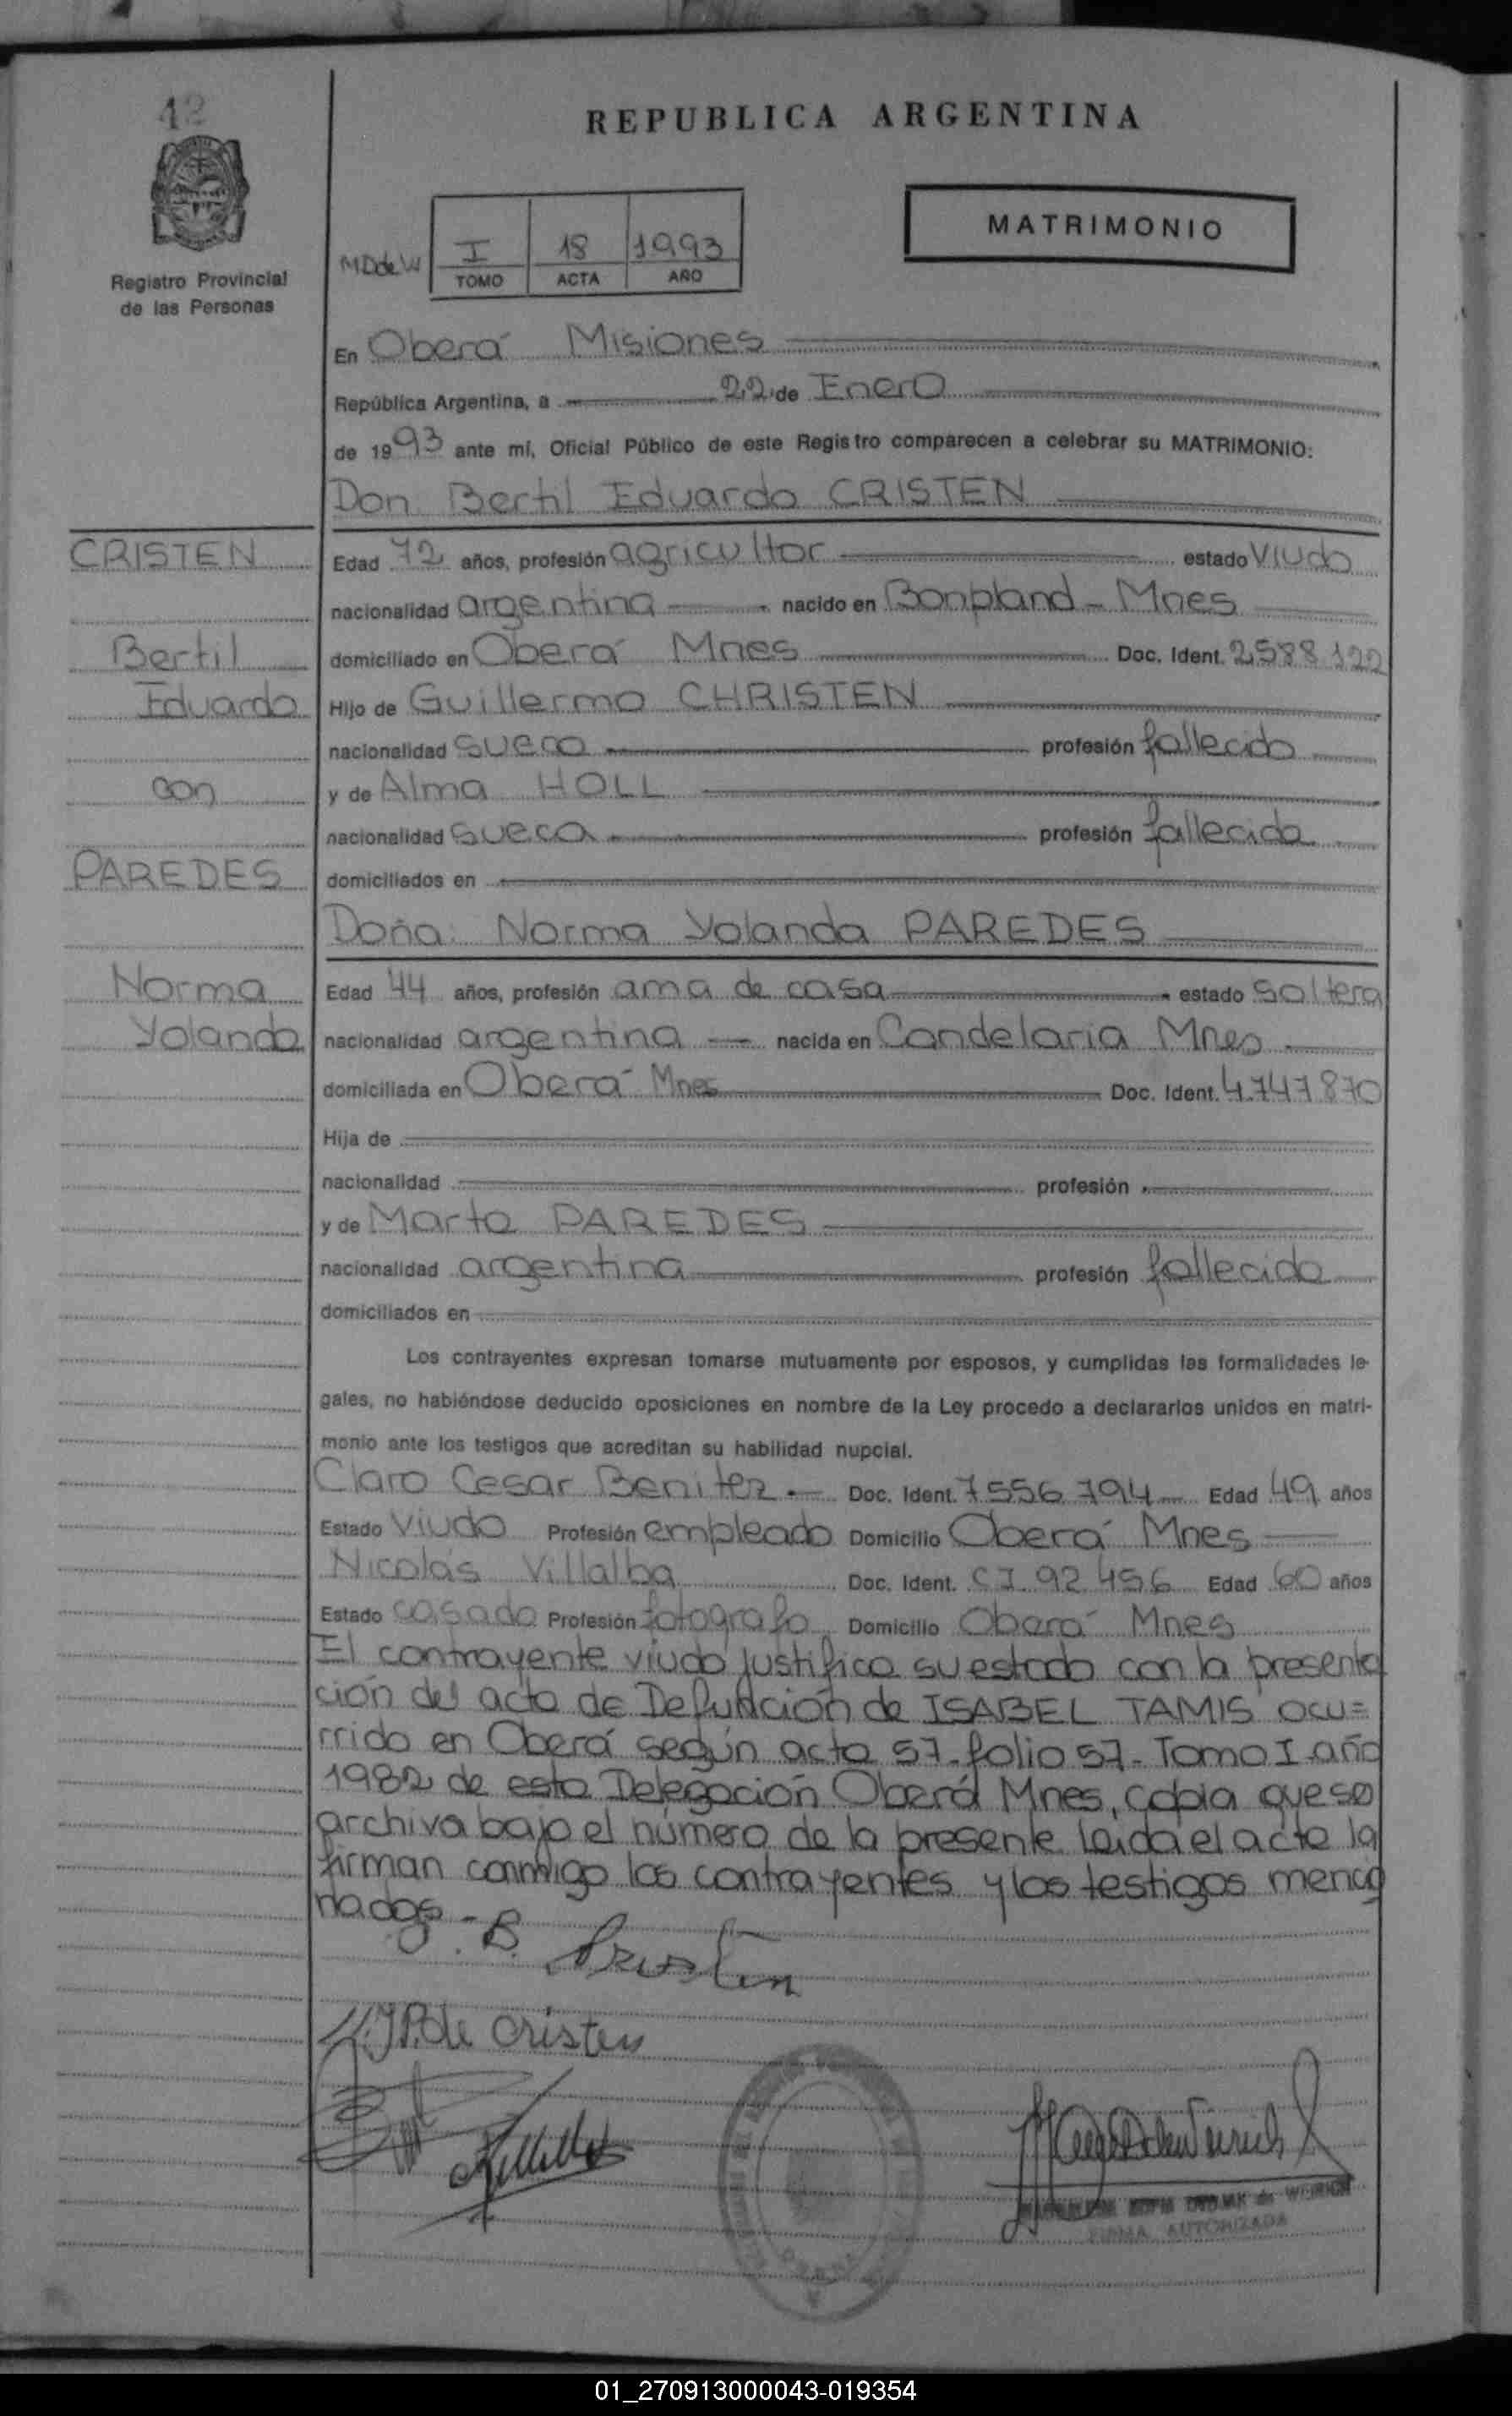 42
REPUBLICA ARGENTINA
Registro Provincial
de las Personas
MDdeW
I 18 1993
TOMO ACTA AÑO
MATRIMONIO
En Oberá Misiones
República Argentina, a 22 de Enero
de 1993 ante mí, Oficial Público de este Registro comparecen a celebrar su MATRIMONIO:
Don Bertil Eduardo CRISTEN
CRISTEN
Bertil
Eduardo
con
PAREDES
Norma
Yolanda
Edad 72 años, profesión agricultor estado viudo
nacionalidad argentina nacido en Bonpland - Mnes
domiciliado en Oberá Mnes Doc. Ident. 2.588.122
Hijo de Guillermo CHRISTEN
nacionalidad sueco profesión fallecido
y de Alma HOLL
nacionalidad sueca profesión fallecida
domiciliados en
Doña Norma Yolanda PAREDES
Edad 44 años, profesión ama de casa estado soltera
nacionalidad argentina nacida en Candelaria Mnes
domiciliada en Oberá Mnes Doc. Ident. 4.747.870
Hija de
nacionalidad profesión
y de Marta PAREDES
nacionalidad argentina profesión fallecida
domiciliados en
Los contrayentes expresan tomarse mutuamente por esposos, y cumplidas las formalidades le-
gales, no habiéndose deducido oposiciones en nombre de la Ley procedo a declararlos unidos en matri-
monio ante los testigos que acreditan su habilidad nupcial.
Claro Cesar Benitez.- Doc. Ident. 7556794 Edad 49 años
Estado viudo Profesión empleado Domicilio Oberá Mnes
Nicolás Villalba Doc. Ident. CI 92456 Edad 60 años
Estado casado Profesión fotografo Domicilio Oberá Mnes
El contrayente viudo justifica su estado con la presenta
ción del acta de Defunción de ISABEL TAMIS ocu=
rrido en Oberá según acta 57-folio 57-Tomo I año
1982 de esta Delegación Oberá Mnes, copia que se
archiva bajo el número de la presente. Leida el acta la
firman conmigo los contrayentes y los testigos mencio
nados.-
B. Cristen
N.Y.P.de Cristen
DVORAK de WEIRICH
FIRMA AUTORIZADA
01_270913000043-019354